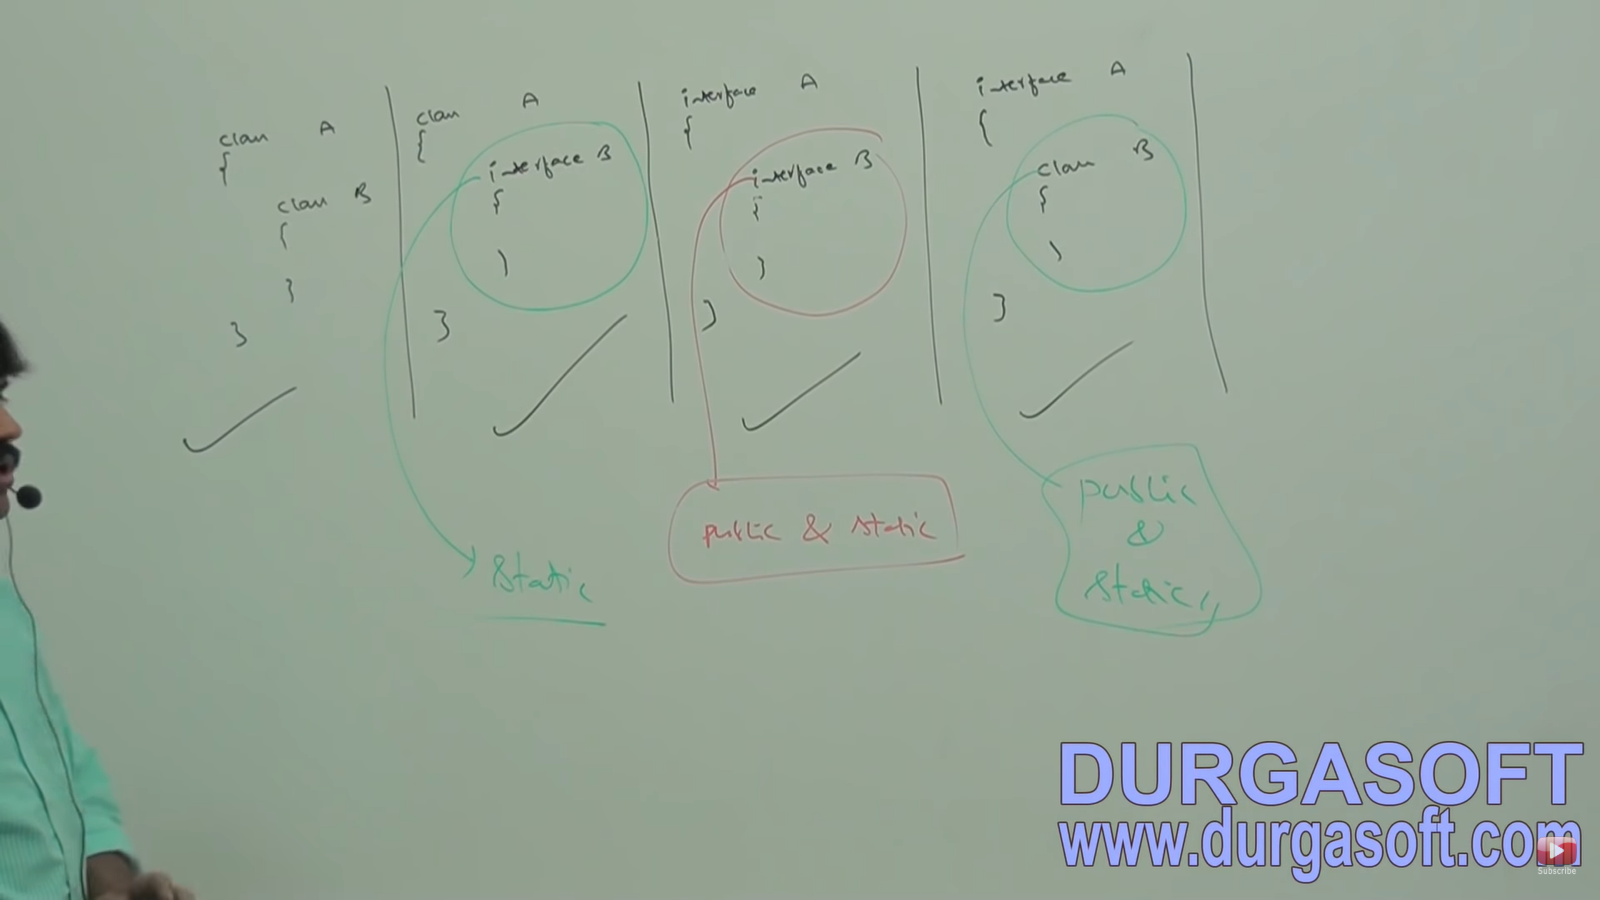 class A
{
class B
{
}
}
class A
{
interface B
{
}
}
static
interface A
{
interface B
{
}
}
public & static
interface A
{
class B
{
}
}
public
&
static
DURGASOFT
www.durgasoft.com
Subscribe